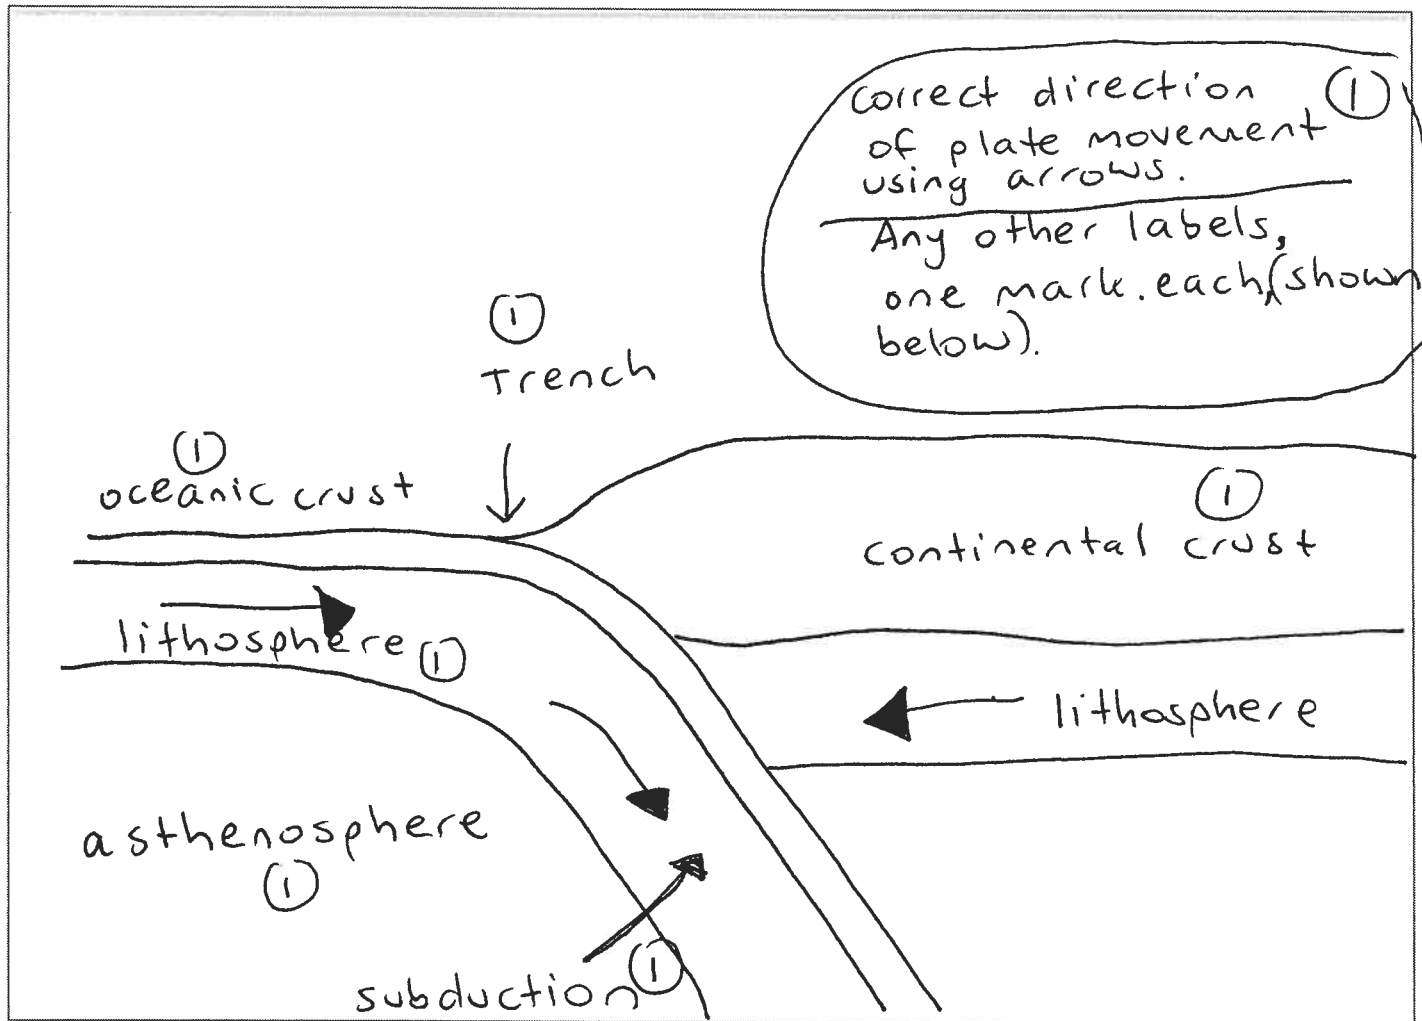 Correct direction ①
of plate movement
using arrows.
Any other labels,
one mark. each, (shown
below).
①
Trench
①
oceanic crust
①
continental crust
lithosphere ①
lithosphere
asthenosphere
①
subduction ①